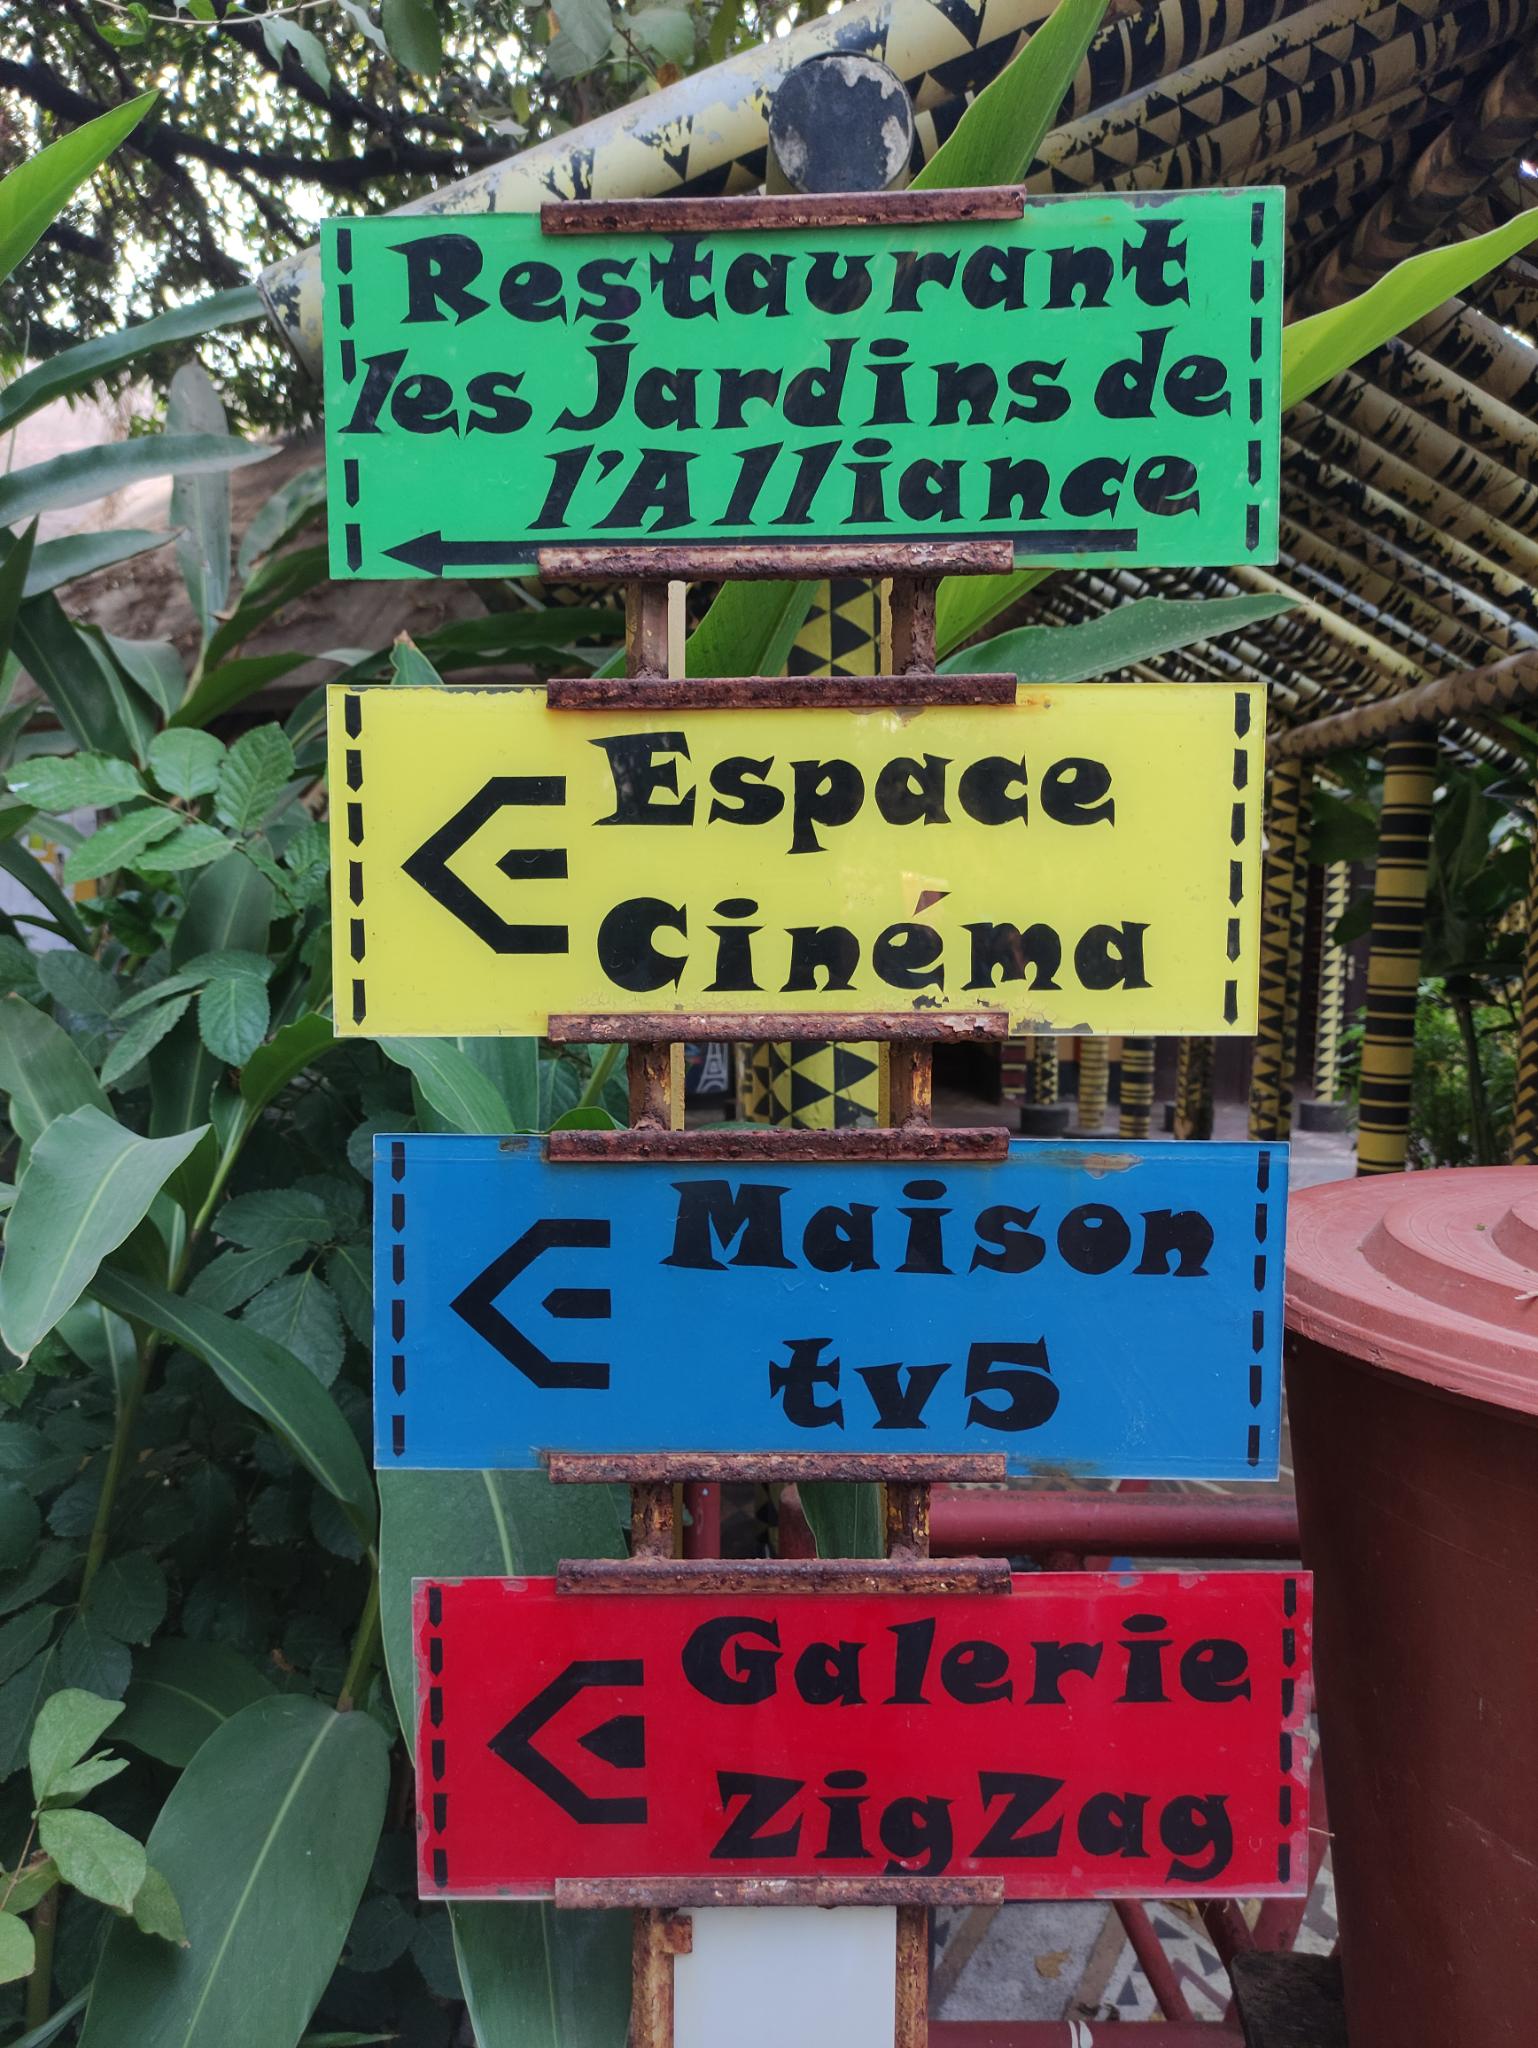 Restaurant
les jardins de
l'Alliance
Espace
Cinéma
Maison
tv5
Galerie
ZigZag